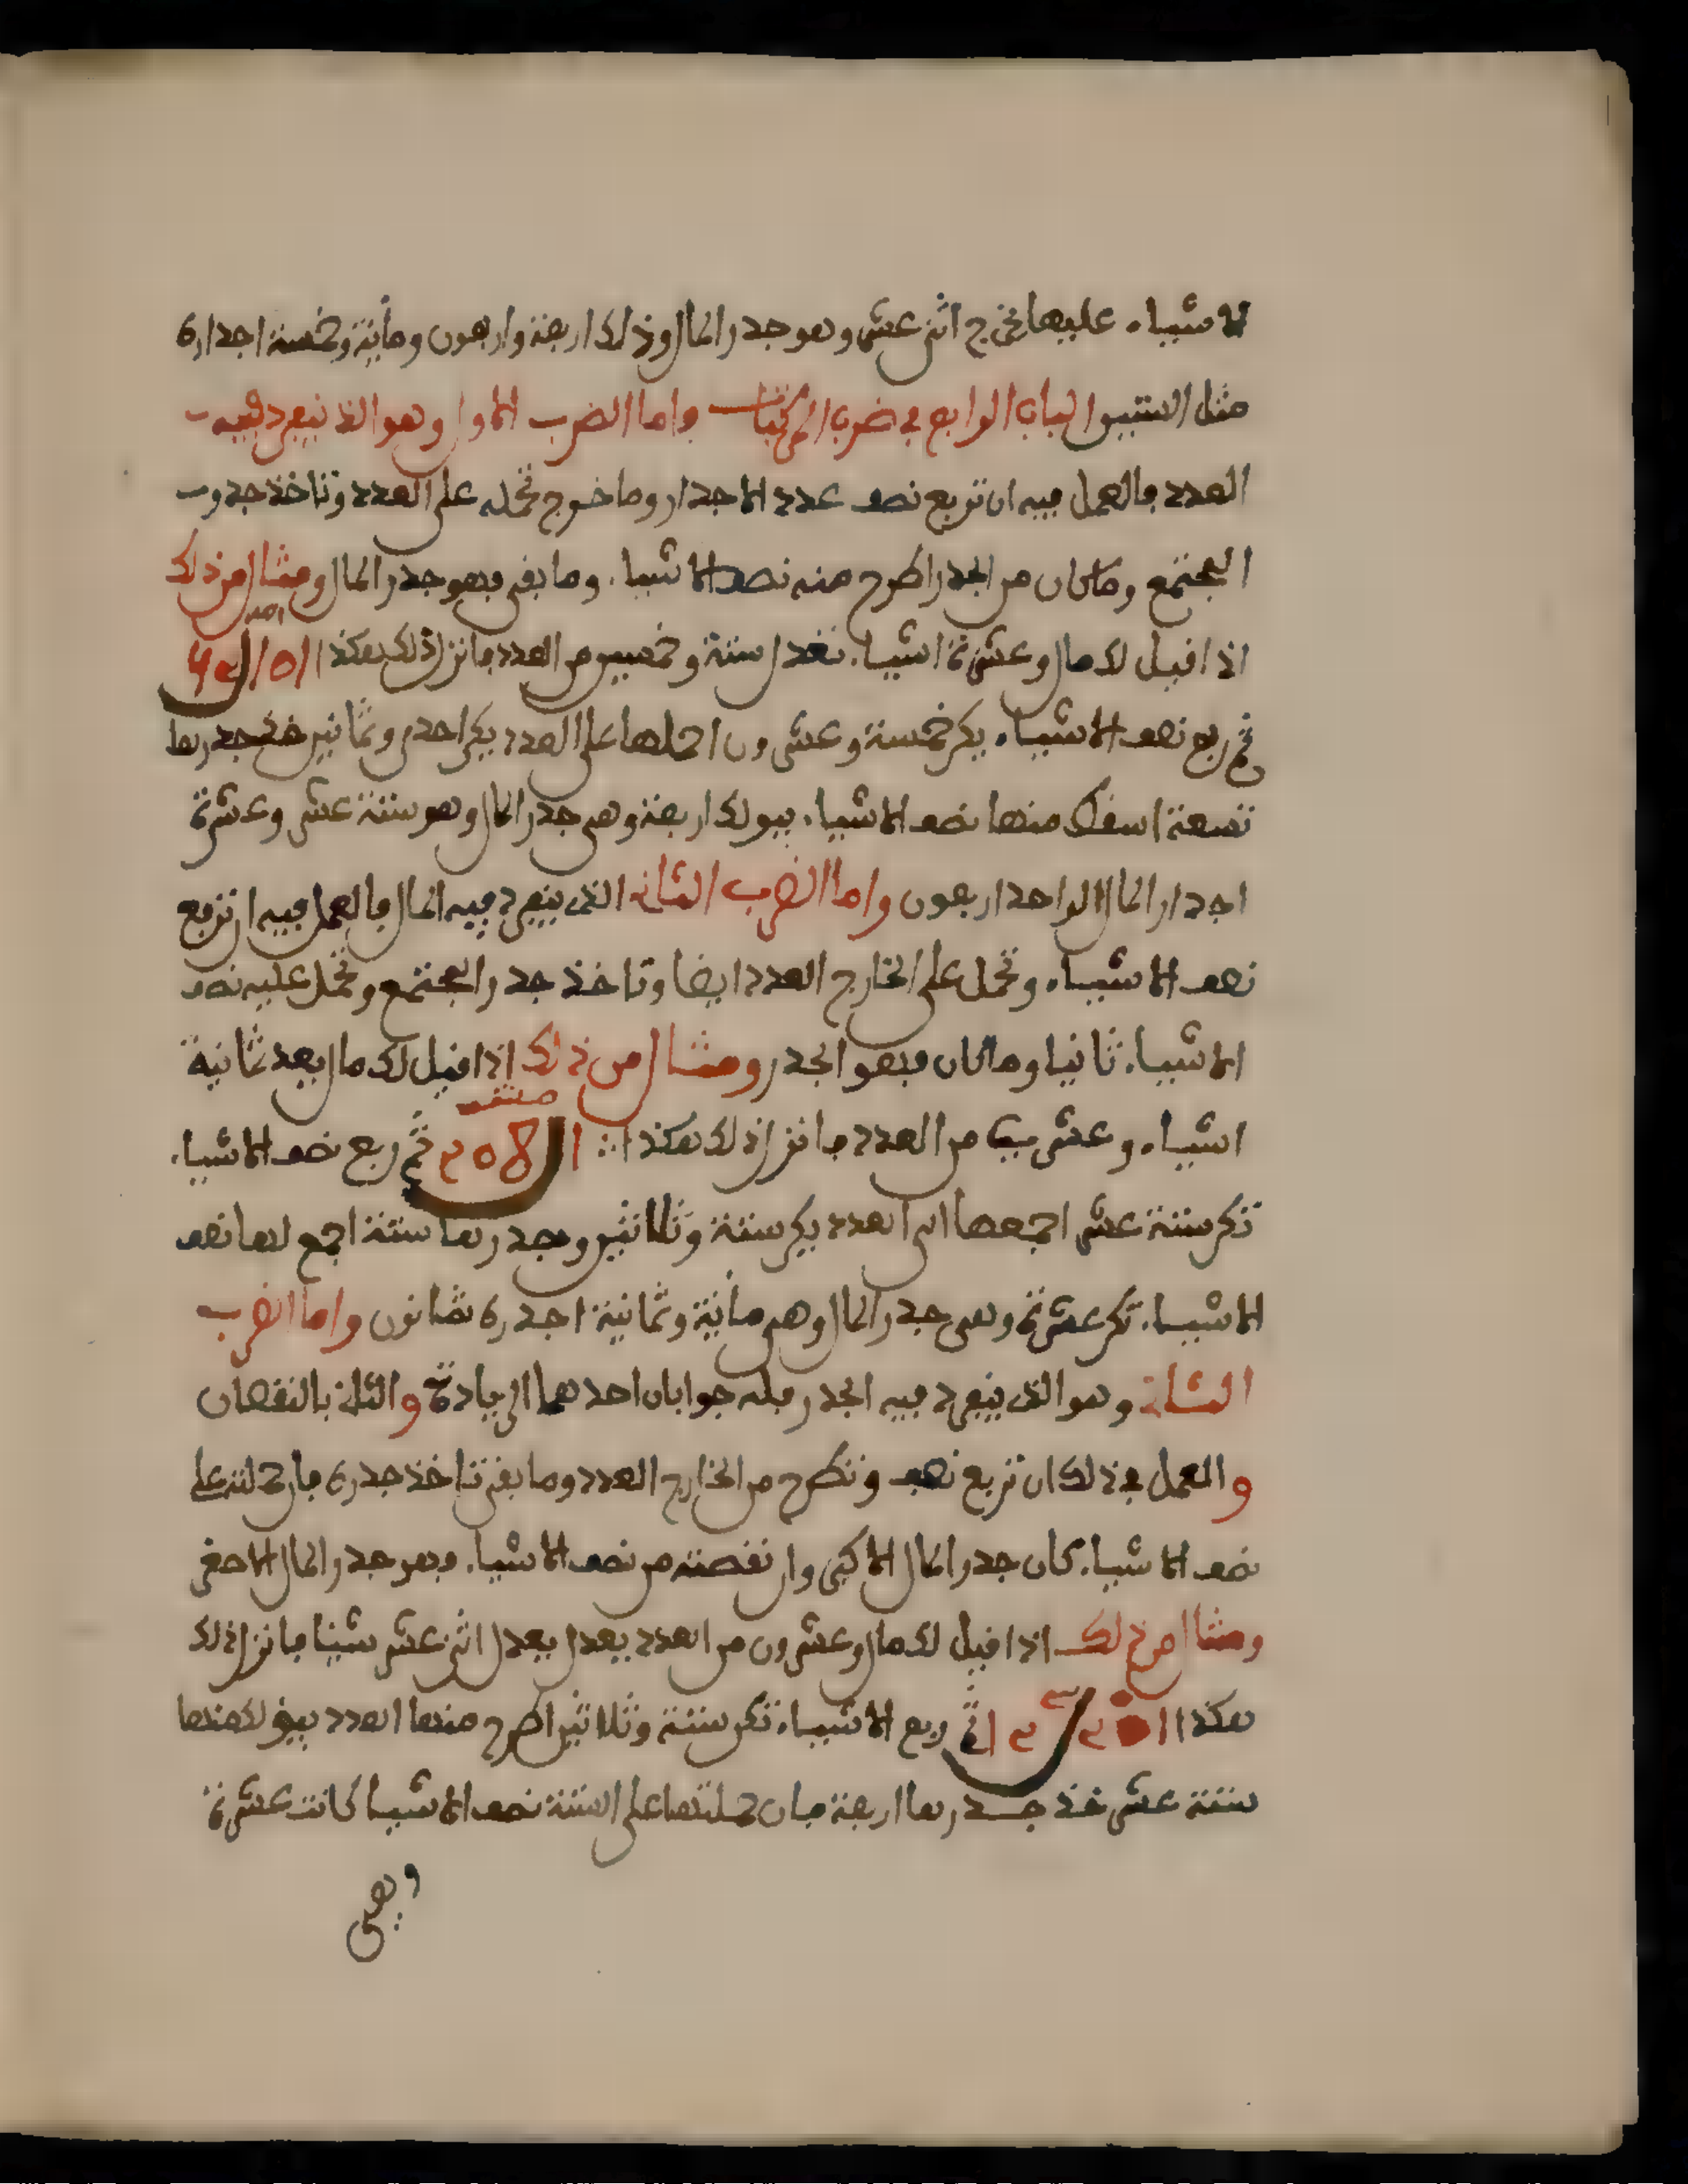 الاشياء عليها يخرج اثنى عشر وهو جدر المال وذلك اربعة واربعون ومائة وخمسة اجداره
مثل الستين الباب الرابع في ضرب المركبات واما الضرب الاول وهو الذ ينفرد فيه
العدد فالعمل فيه ان تربع نصف عدد الاجدار وما خرج تحمله على العدد وتاخذ جدر
المجتمع وما كان من الجدر اطرح منه نصف الاشياء وما بقى فهو جدر المال ومثال من ذلك
اذا قيل لك مال وعشرة اشياء تعدل ستة وخمسين من العدد فانزل ذلك هكذا
ثم ربع نصف الاشياء يكن خمسة وعشرون احملها على العدد يكن احدى وثمانين خذ جدرها
تسعة اسقط منها نصف الاشياء يبق لك اربعة وهى جدر المال وهو ستة عشر وعشرة
اجدار المال الواحد اربعون واما الضرب الثانى الذى ينفرد فيه المال فالعمل فيه ان تربع
نصف الاشياء وتحمل على الخارج العدد ايضا وتاخذ جدر المجتمع وتحمل عليه نصف
الاشياء ثانيا وما كان فهو الجدر ومثال من ذلك اذا قيل لك مال يعد ثمانية
اشياء وعشرين من العدد فانزل ذلك هكذا ثم ربع نصف الاشياء
تكن ستة عشر اجمعها الى العدد يكن ستة وثلاثين وجدرها ستة اجمع لها نصف
الاشياء تكن عشرة وهى جدر المال وهى مائة وثمانية اجدره ثمانون واما الضرب
الثالث وهو الذى ينفرد فيه الجدر فله جوابان احدهما الزيادة والثانى بالنقصان
والعمل في ذلك ان تربع نصف وتطرح من الخارج العدد وما بقى تاخذ جدره فان حملته على
نصف الاشياء كان جدر المال الاكبر وان نقصته من نصف الاشياء فهو جدر المال الاصغر
ومثال من ذلك اذا قيل لك مال وعشرون من العدد يعدل يعدل اثنى عشر شيئا فانزل ذلك
هكذا ثم ربع الاشياء تكن ستة وثلاثين اطرح منها العدد يبق لك منها
ستة عشر خذ جدرها اربعة فان حملتها على الستة نصف الاشيا كانت عشرة
وهى